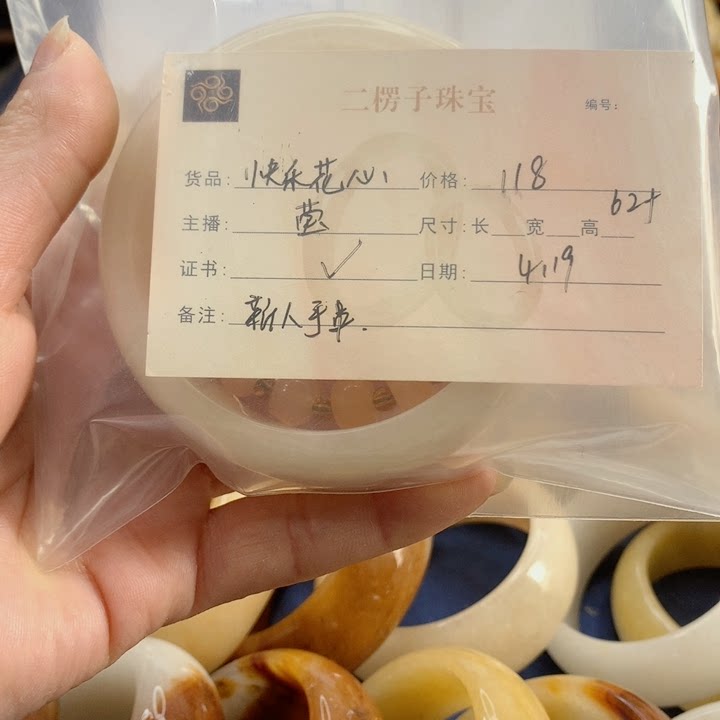 二楞子珠宝
编号:
货品: 快乐花心 价格: 118
主播: 莹 尺寸:长 宽 高 62+
证书: ✓ 日期: 4.19
备注: 新人手串.